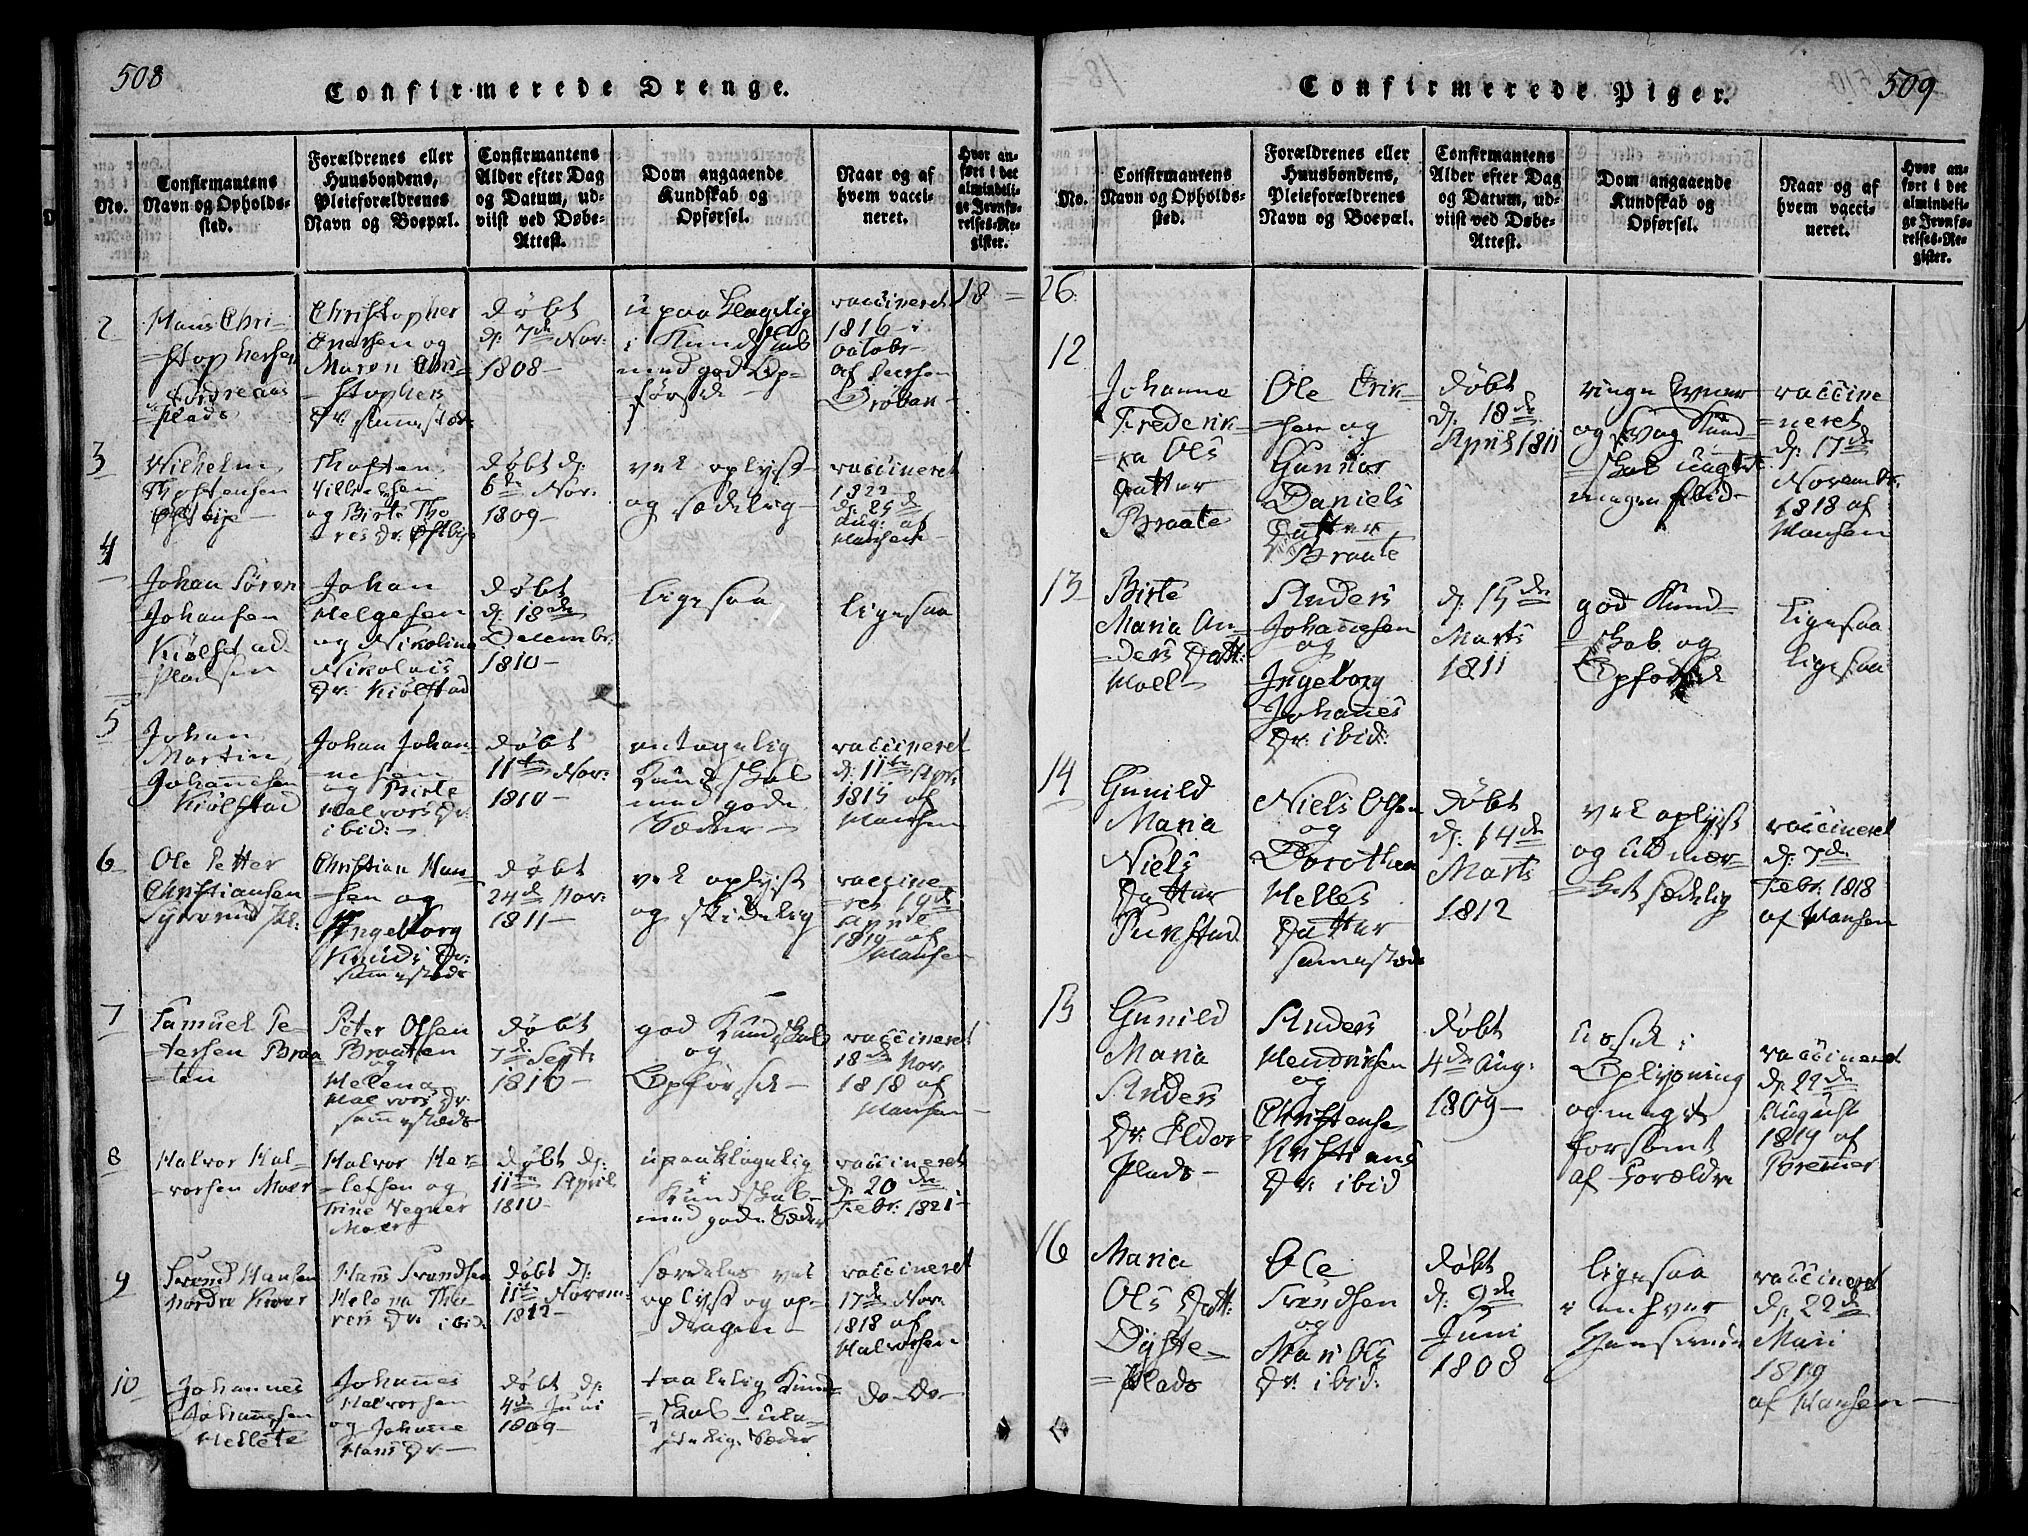 508
Confirmerede Drenge.
No.
Confirmantens
Navn og Opholds-
sted.
Forældrenes eller
Huusbondens,
Pleieforældrenes
Navn og Boepæl.
Confirmantens
Alder efter Dag
og Datum, ud-
viist ved Døbe-
Attest.
Dom angaaende
Kundskab og
Opførsel.
Naar og af
hvem vacci-
neret.
Hvor an-
ført i det
almindeli-
ge Jevnfø-
relses-Re-
gister.
18 =
2
Hans Chri-
=stophersen
Plads
Christopher
og
Maren Chri-
=stophers
Dr.
døbt
d: 7de Nov:
1808-
upaaklagelig
i Kundskab
med god Op-
=førsel -
vaccineret
1816 - i
October
af
Drøbak-
3
Vilhelm
og Birte Tho
=res Dr.
døbt d:
6te Nov.
1809-
vel oplyst
og sædelig-
vaccineret
1822
d: 25de
Aug: af
Hansen-
4
Johan Søren
Johansen
Kiølstad
Pladsen
Johan
Helgesen
og Nikolina
Nikolais
Dr. Kiølstad
døbt
d: 18de
Decembr.
1810-
ligesaa
ligesaa
5
Johan
Martin
Johannesen
Kiølstad
Johan Johan-
=nesen
og Birte
Halvors Dr.
ibid:-
døbt
11te Nov:
1810-
antagelig
Kundskab
med gode
Sæder-
vaccineret
d: 11te
1815 af
Hansen
6
Ole Petter
Christiansen
Christian Han-
=sen og
Ingeborg
Knuds Dr.
sammesteds
døbt
24de Nov.
1811-
vel oplyst
og skikelig
vaccine-
=ret 19de
1819 af
Hansen
7
Samuel Pe-
=tersen Braa
=ten
Peter Olsen
Braaten
og
Helena
Halvors Dr.
sammesteds
døbt
7de Sept:
1810-
god Kundskab
og
Opførsel-
vaccineret
18de Nov.
1818 af
Hansen-
8
Halvor Hal-
=vorsen Moer
Halvor Her-
=lefsen og
Trine Vegner
Moer
døbt d:
11te April
1810-
upaaklagelig
i
Kundskab-
med gode Sæder
vaccineret
d: 20de
Febr. 1821-
9
Svend Hansen
Nordre
Hans Svendsen
Helena Tho-
res Dr. ibid.
døbt d:
11te Novem-
1812-
særdeles vel
oplyst og op-
=dragen-
vaccineret
17de Nov.
1818 af
Halvorsen
10
Johannes
Johannesen
Johannes
Halvorsen
og Johanne
Hans Dr-
døbt d:
4de Juni
1809-
taalelig Kund
=skab-
Sæder
do-do-
509
Confirmerede Piger.
No.
Confirmantens
Navn og Opholds-
sted.
Forældrenes eller
Huusbondens,
Pleieforældrenes
Navn og Boepæl.
Confirmantens
Alder efter Dag
og Datum, ud-
viist ved Døbe-
Attest.
Dom angaaende
Kundskab og
Opførsel.
Naar og af
hvem vacci-
neret.
Hvor an-
ført i det
almindeli-
ge Jevnfø-
relses-Re-
gister.
26.
12
Johanne
Frederik-
=ka Ols
Datter
Braate
Ole Erik-
=sen og
Gunnor
Daniels
Datter
Braate
døbt
d: 18de
April 1811
ringe Evner
og svag Kund-
=skab
megen Flid-
vaccine
=neret
d: 17de
Novembr.
1818 af
Hansen
13
Birte
Maria An-
=ders Datt:
Moll-
Anders
Johannesen
og
Ingeborg
Johannes
Dr. ibid:
d: 15de
Marts
1811
god Kund-
=skab og
Opførsel
ligesaa
ligesaa
14
Gunild
Maria
Niels
Datter
Niels Olsen
og
Dorothea
Helles
Datter
sammesteds
døbt
d: 14de
Marts
1812
vel oplyst
og udmær-
=ket sædelig
vaccineret
d: 7de
Febr. 1818
af Hansen
15
Gunild
Maria
Anders
Dr.
Plads-
Anders
Hendriksen
og
Christense
Dr. ibid
døbt
4de Aug:
1809-
i
Oplysning
og meget
forsømt
af Forældre
vaccineret
d: 22de
August
1819 af
Bremer
16
Maria
Ols Datt:
Dyste-
=Plads
Ole
Svendsen
og
Mari Ols
Dr. ibid:
døbt
d: 9de
Juni
1808
ligesaa
i enhver
vaccineret
d: 22de
Mari
1819
af Hansen-